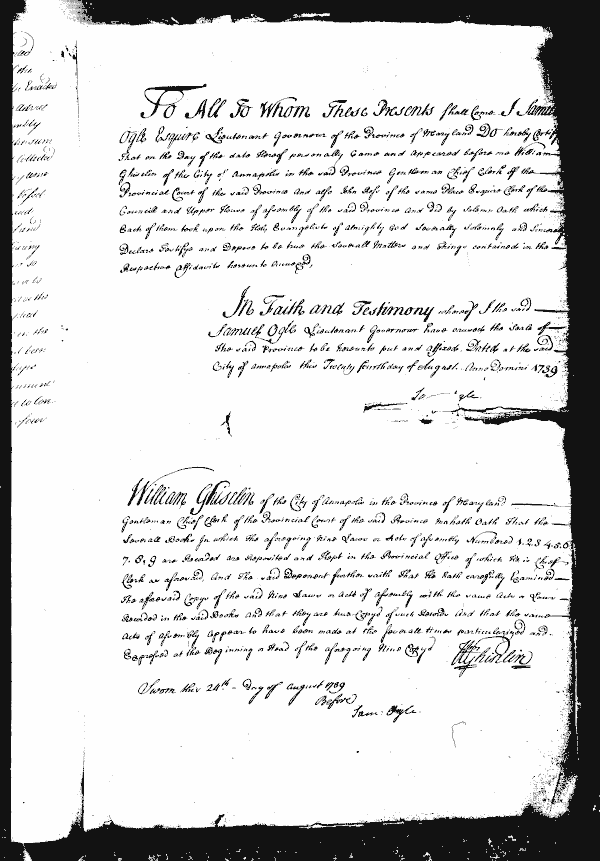 To All To Whom These Presents shall Come I Samuel
Ogle Esquire Lieutenant Governour of the Province of Maryland Do hereby Certify
That on the Day of the date hereof personally Came and Appeared before me William
Ghiselin of the City of Annapolis in the said Province Gentleman Chief Clerk of the
Provincial Court of the said Province And also John Ross of the same Place Esquire Clerk of the
Councill and Upper House of Assembly of the said Province And Did by Solemn Oath which
Each of them took upon the Holy Evangelists of Almighty God Severally Solemnly and Sincerely
Declare Testifye and Depose to be true the Severall Matters and Things contained in the
Respective Affidavits hereunto Annexed,
In Faith and Testimony whereof I the said
Samuel Ogle Lieutenant Governour have caused the Seale of
the said Province to be hereunto put and affixed. Dated at the said
City of Annapolis this Twenty fourth day of August Anno Domini 1739
Sam Ogle
William Ghiselin of the City of Annapolis in the Province of Maryland
Gentleman Chief Clerk of the Provincial Court of the said Province maketh Oath That the
Severall Books In which the aforegoing Nine Laws or Acts of Assembly Numbered 1. 2. 3. 4. 5. 6
7. 8, 9 are Recorded are Deposited and Kept in the Provincial Office of which He is Chief
Clerk as aforesaid, And The said Deponent further saith That He hath carefully Examined
the aforesaid Copys of the said Nine Laws or Acts of Assembly with the same Acts or Laws
Recorded in the said Books And that they are true Copys of such Records And that the same
Acts of Assembly Appear to have been made at the severall times particularized and
Expressed at the Beginning or Head of the aforegoing Nine Copys
Wm Ghiselin
Sworn this 24th Day of August 1739
Before
Sam: Ogle